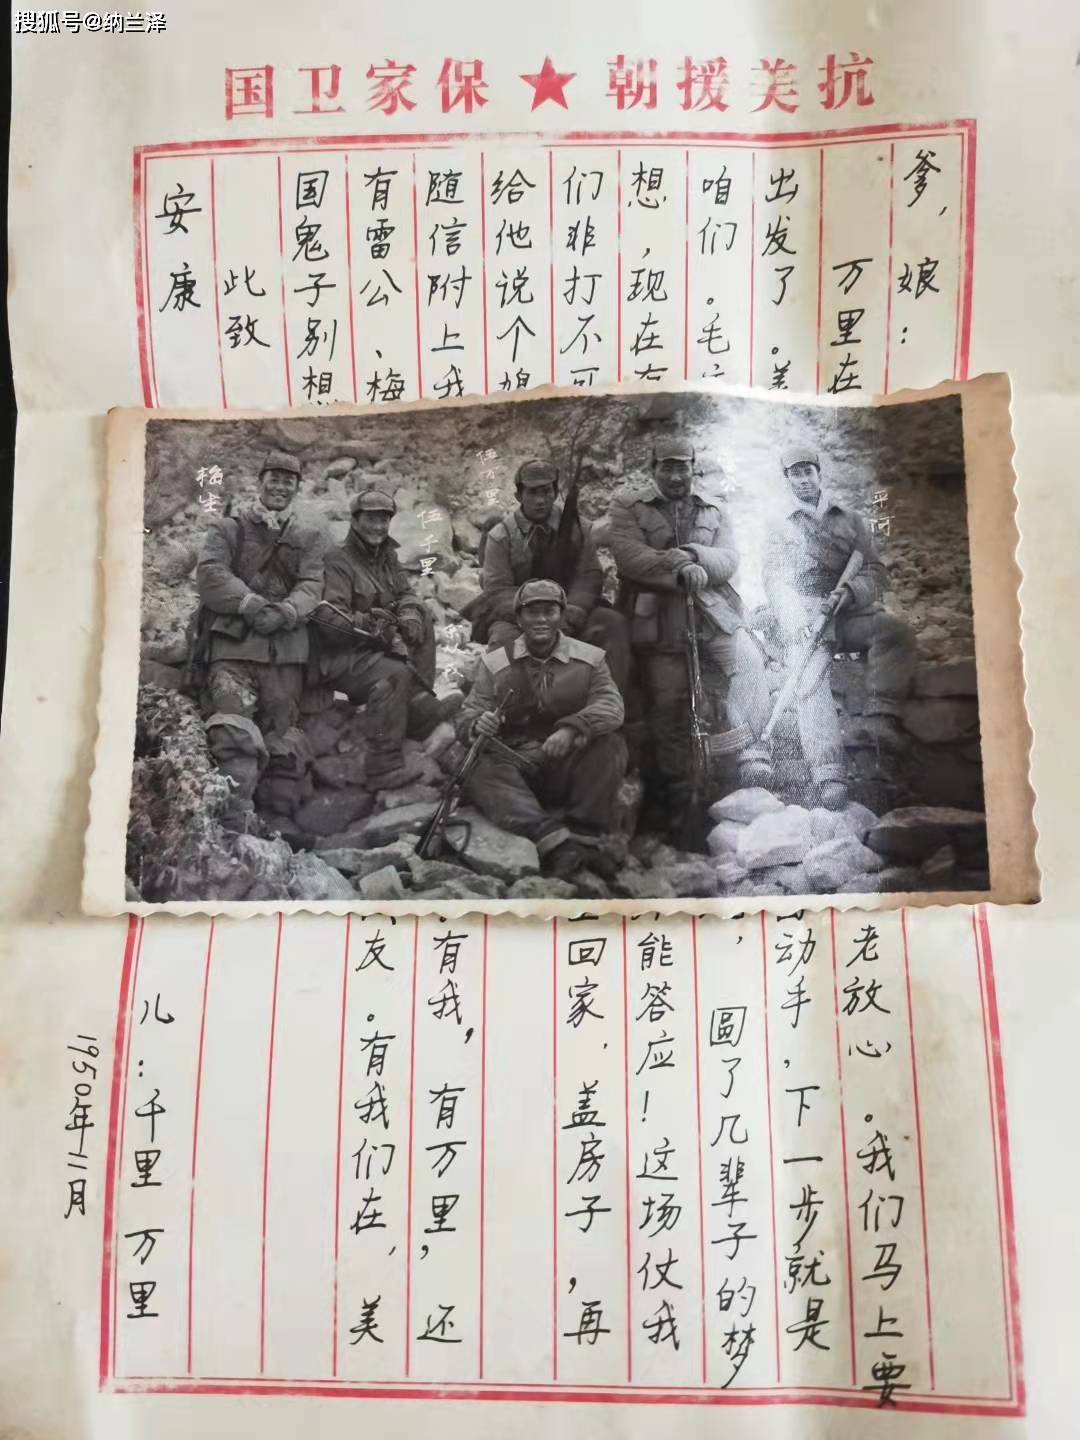 搜狐号@纳兰泽
抗美援朝★保家卫国
爹，娘：
万里在
老放心。我们马上要
出发了。美
动手，下一步就是
咱们。毛
，圆了几辈子的梦
想，现在
能答应！这场仗我
们非打不可
回家，盖房子，再
给他说个媳
随信附上我
有我，有万里，还
有雷公、梅
友。有我们在，美
国鬼子别想
此致
安康
儿：千里 万里
1950年11月
梅生
伍千里
伍万里
平河